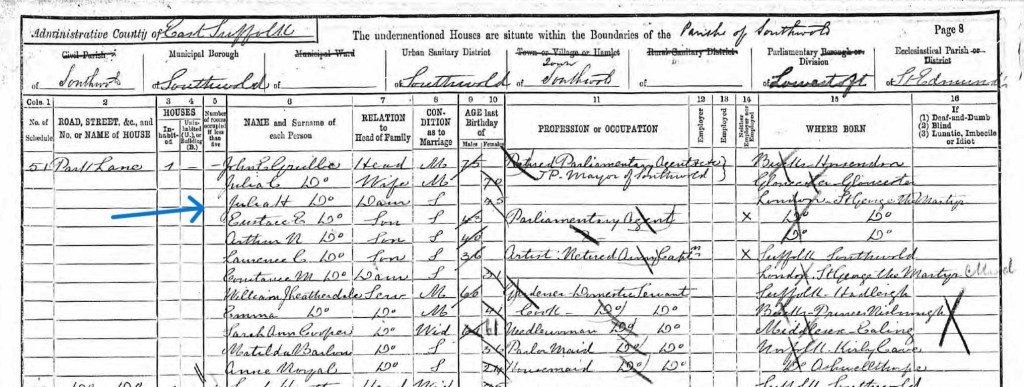 Administrative County of East Suffolk
The undermentioned Houses are situate within the Boundaries of the Parish of Southwold
Page 8
Civil Parish Municipal Borough Municipal Ward Urban Sanitary District Town or Village or Hamlet Rural Sanitary District Parliamentary Borough or Division Ecclesiastical Parish or District
Town
of Southwold of Southwold of of Southwold of Southwold of of Lowestoft of St Edmunds
Cols. 1 2 3 4 5 6 7 8 9 10 11 12 13 14 15 16
No. of Schedule ROAD, STREET, &c., and No. or NAME of HOUSE HOUSES Inhabited Uninhabited (U.), or Building (B.) Number of rooms occupied if less than five NAME and Surname of each Person RELATION to Head of Family CONDITION as to Marriage AGE last Birthday of Males Females PROFESSION or OCCUPATION Employer Employed Neither Employer nor Employed WHERE BORN If (1) Deaf-and-Dumb (2) Blind (3) Lunatic, Imbecile or Idiot
51 Park Lane 1 John E Grubbe Head M 75 Retired Parliamentary Agent Bucks Horsendon
Julia C Do Wife M JP. Mayor of Southwold Gloucester Gloucester
Julia H Do Daur S 45 London St George the Martyr
Eustace E Do Son S Parliamentary Agent X Do Do
Arthur N Do Son S 40 Do Do
Laurence C Do Son S 36 Artist: Retired Army Captn X Suffolk Southwold
Constance M Do Daur S London St George the Martyr
William J Leatherdale Serv M 66 Gardener Domestic Servant Suffolk Hadleigh
Emma Do Do M Cook Do Do Bucks Princes Risborough
Sarah Ann Cooper Do Wid 61 Needlewoman Do Do Middlesex Ealing
Matilda Barlow Do S Parlor Maid Do Do Norfolk Kirby Cane
Anne Do S Housemaid Do Do